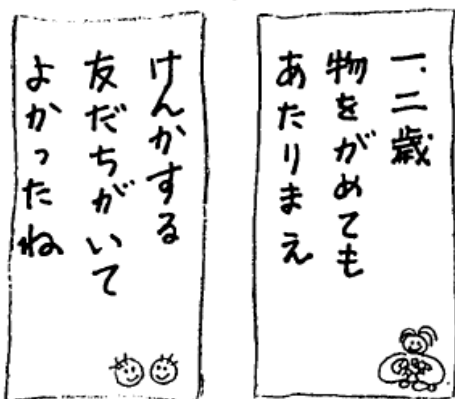 一、二歳
物をがめても
あたりまえ
けんかする
友だちがいて
よかったね